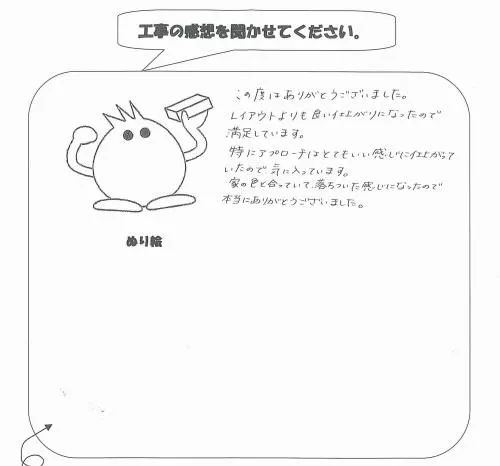 工事の感想を聞かせてください。
この度はありがとうございました。
レイアウトよりも良い仕上がりになったので
満足しています。
特にアプローチはとてもいい感じに仕上がって
いたので気に入っています。
家の色と合っていて、落ちついた感じになったので
本当にありがとうございました。
ぬり絵